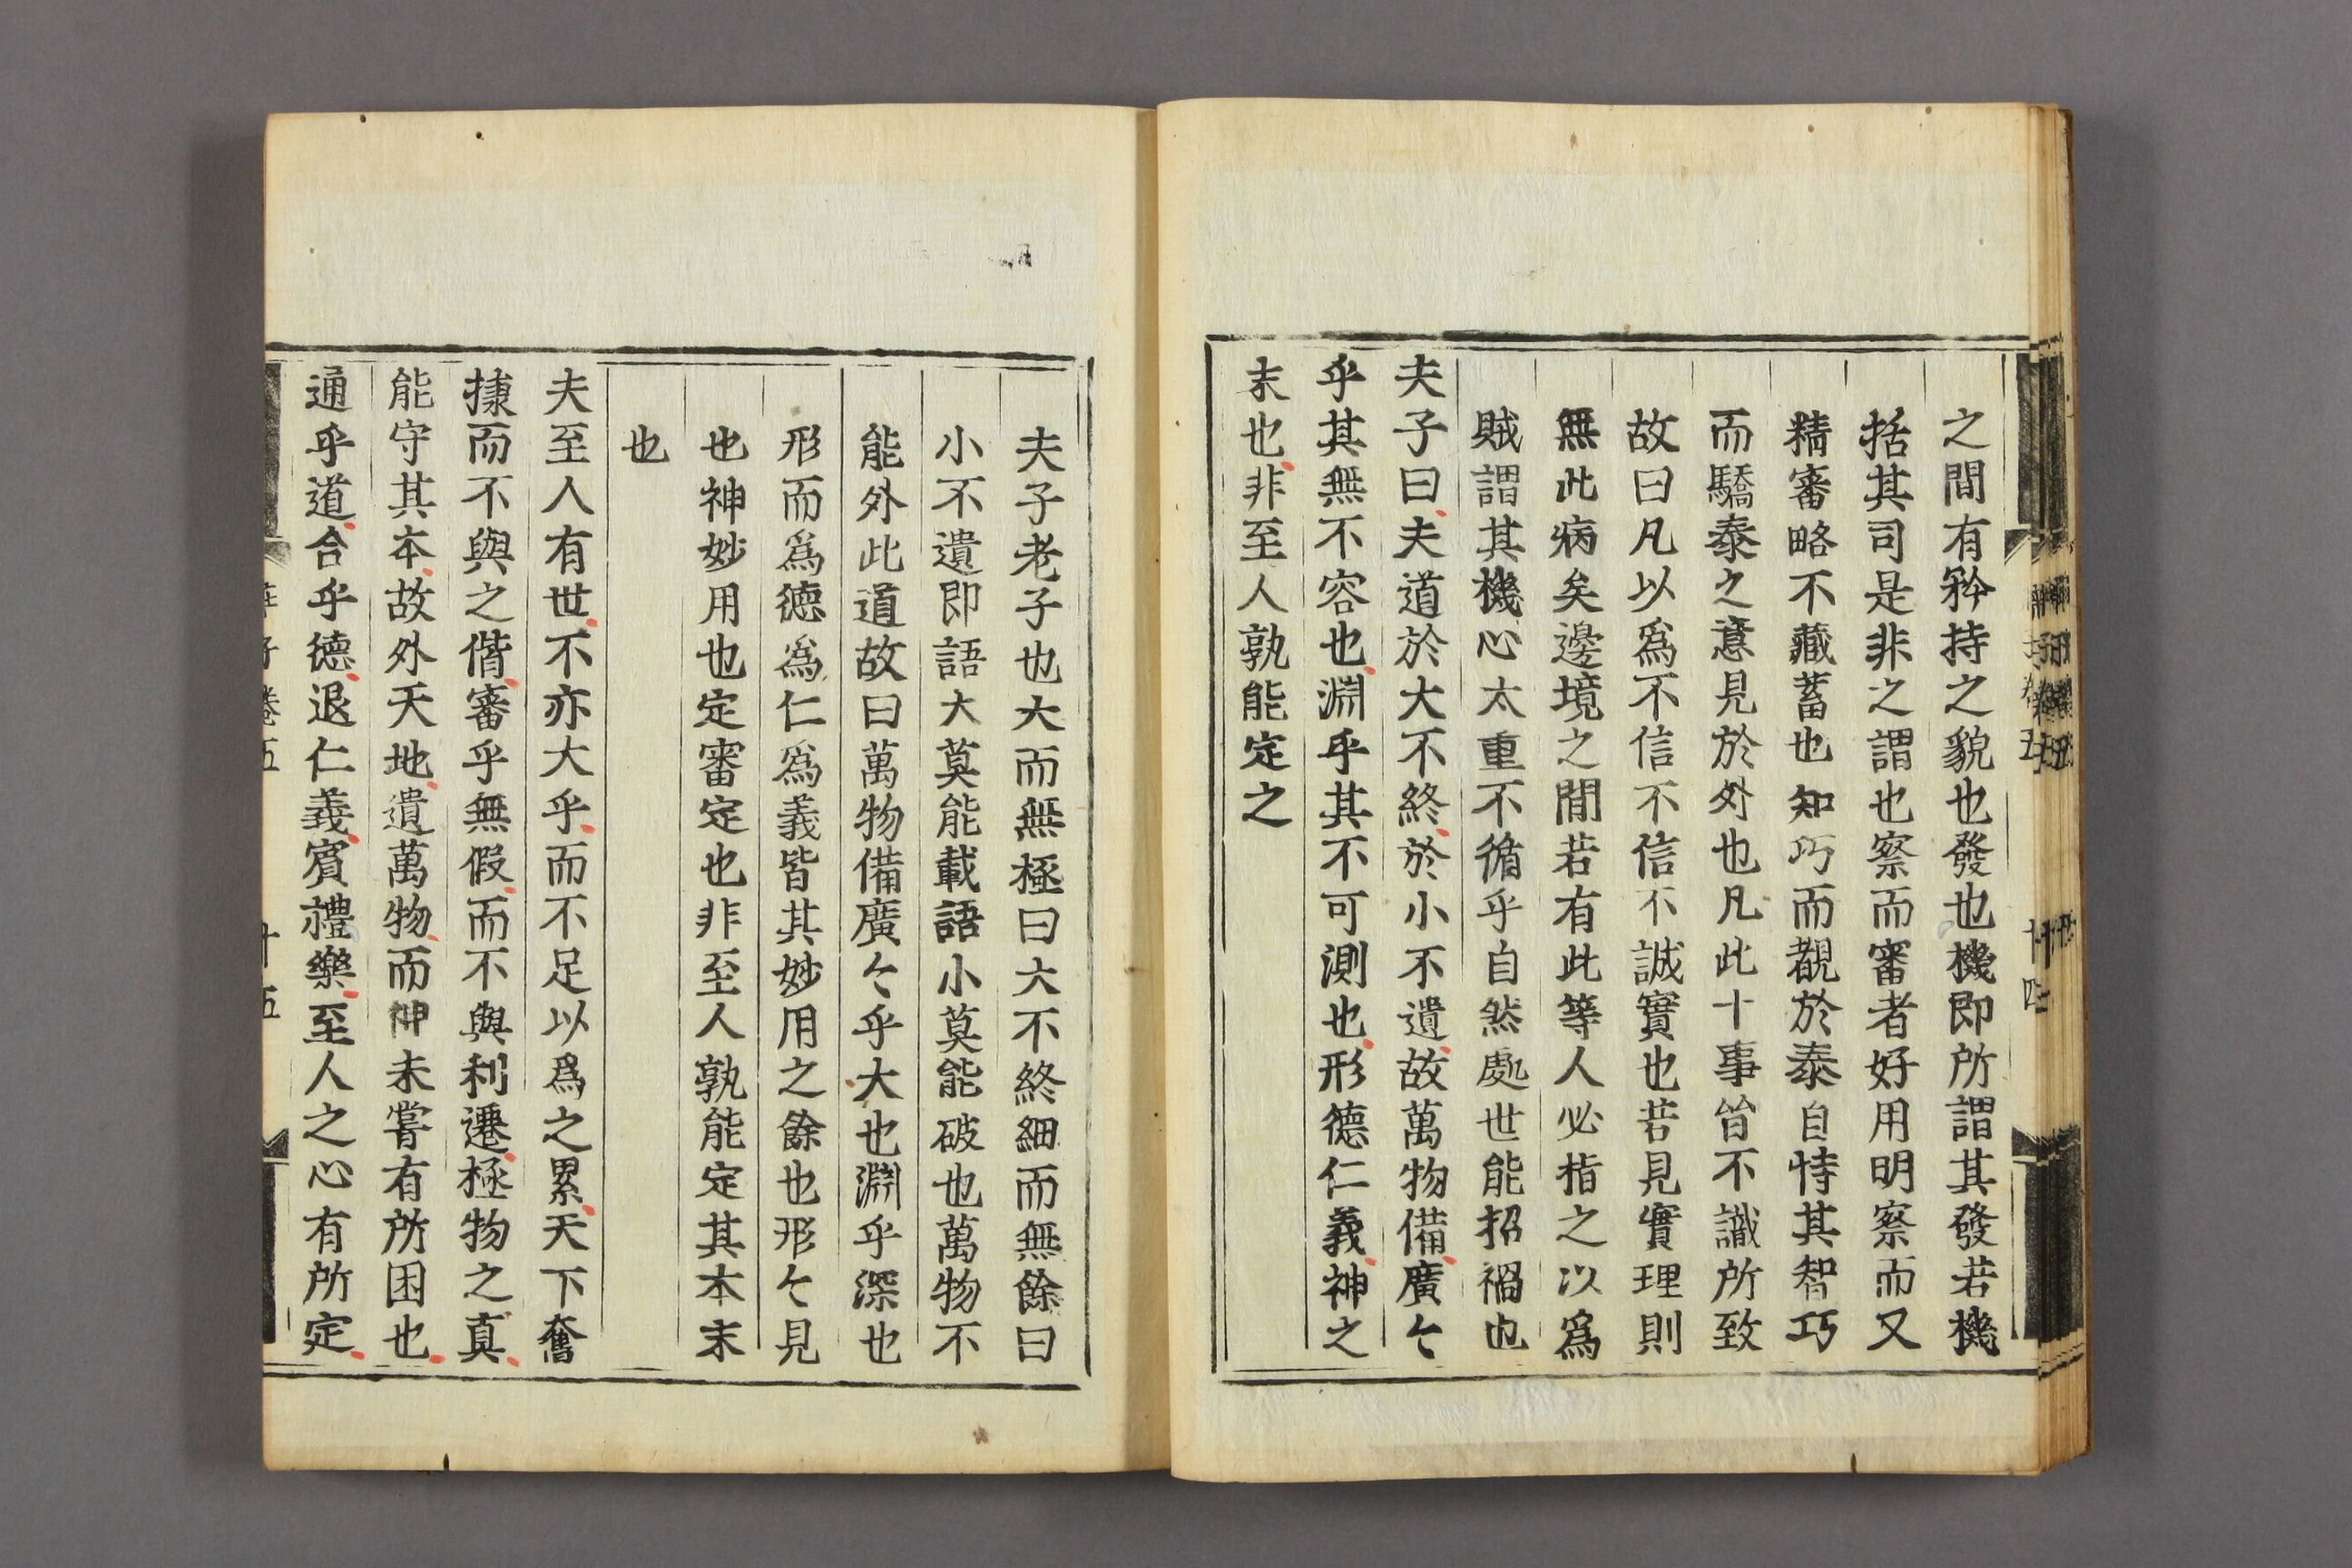 之間有矜持之貌也發也機即所謂其發若機
括其司是非之謂也察而審者好用明察而又
精審略不藏蓄也知巧而覩於泰自恃其智巧
而驕泰之意見於外也凡此十事皆不識所致
故曰凡以爲不信不信不誠實也若見實理則
無此病矣邊境之間若有此等人必指之以爲
賊謂其機心太重不循乎自然處世能招禍也
夫子曰夫道於大不終於小不遺故萬物備廣〻
乎其無不容也淵乎其不可測也形德仁義神之
末也非至人孰能定之
夫子老子也大而無極曰大不終細而無餘曰
小不遺即語大莫能載語小莫能破也萬物不
能外此道故曰萬物備廣〻乎大也淵乎深也
形而爲德爲仁爲義皆其妙用之餘也形〻見
也神妙用也定審定也非至人孰能定其本末
也
夫至人有世不亦大乎而不足以爲之累天下奮
㨿而不與之偕審乎無假而不與利遷極物之真
能守其本故外天地遺萬物而神未嘗有所困也
通乎道合乎德退仁義賓禮樂至人之心有所定
莊子卷五 十五